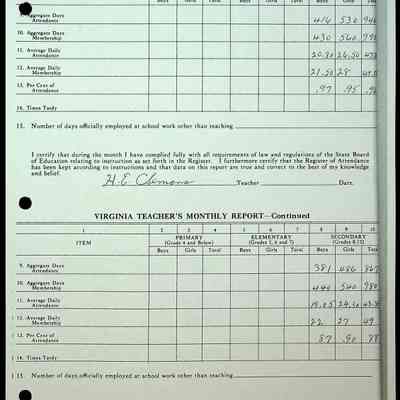 Boys Girls Total Boys Girls Total Boys Girls
9. Aggregate Days
Attendance 416 530 946
10. Aggregate Days
Membership 430 560 990
11. Average Daily
Attendance 20.80 26.50
12. Average Daily
Membership 21.50 28
13. Per Cent of
Attendance .97 .95
14. Times Tardy
15. Number of days officially employed at school work other than teaching
I certify that during the month I have complied fully with all requirements of law and regulations of the State Board
of Education relating to instruction as set forth in the Register. I furthermore certify that the Register of Attendance
has been kept according to instructions and that data on this report are true and correct to the best of my knowledge
and belief.
H. E. Clemons Teacher Date.
VIRGINIA TEACHER'S MONTHLY REPORT—Continued
1 2 3 4 5 6 7 8 9 10
ITEM PRIMARY ELEMENTARY SECONDARY
(Grade 4 and Below) (Grades 5, 6 and 7) (Grades 8-12)
Boys Girls Total Boys Girls Total Boys Girls
9. Aggregate Days
Attendance 381 486 867
10. Aggregate Days
Membership 440 540 980
11. Average Daily
Attendance 19.05 24.30
12. Average Daily
Membership 22 27 49
13. Per Cent of
Attendance 87 .90
14. Times Tardy
15. Number of days officially employed at school work other than teaching